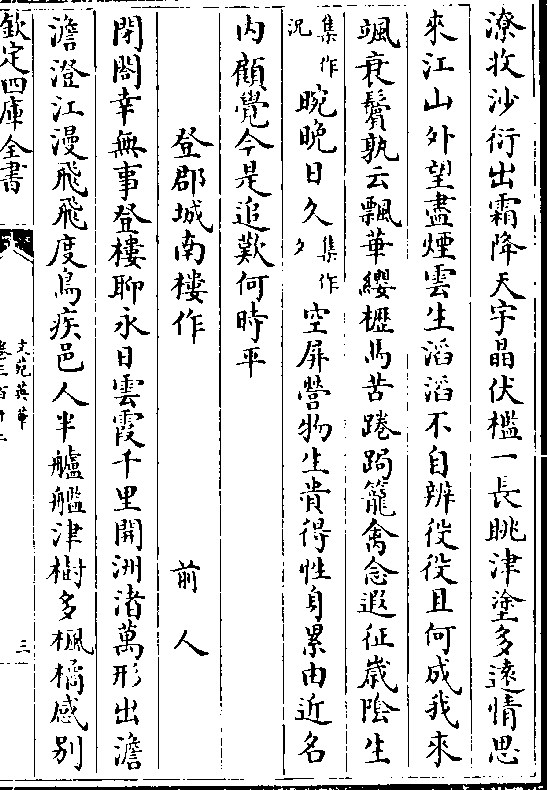 潦收沙衍出霜降天宇晶伏檻一長眺津塗多遠情思
來江山外望盡煙雲生滔滔不自辨役役且何成我來
颯衰鬢孰云飄華纓櫪馬苦踡跼籠禽念遐征歲陰生
集作況晼晚日久集作夕空屏營物生貴得性身累由近名
内顧覺今是追歎何時平
登郡城南樓作 前人
閉閤幸無事登樓聊永日雲霞千里開洲渚萬形出澹
澹澄江漫飛飛度鳥疾邑人半艫艦津樹多楓橘感別
欽定四庫全書
文苑英華
卷三百十二
三